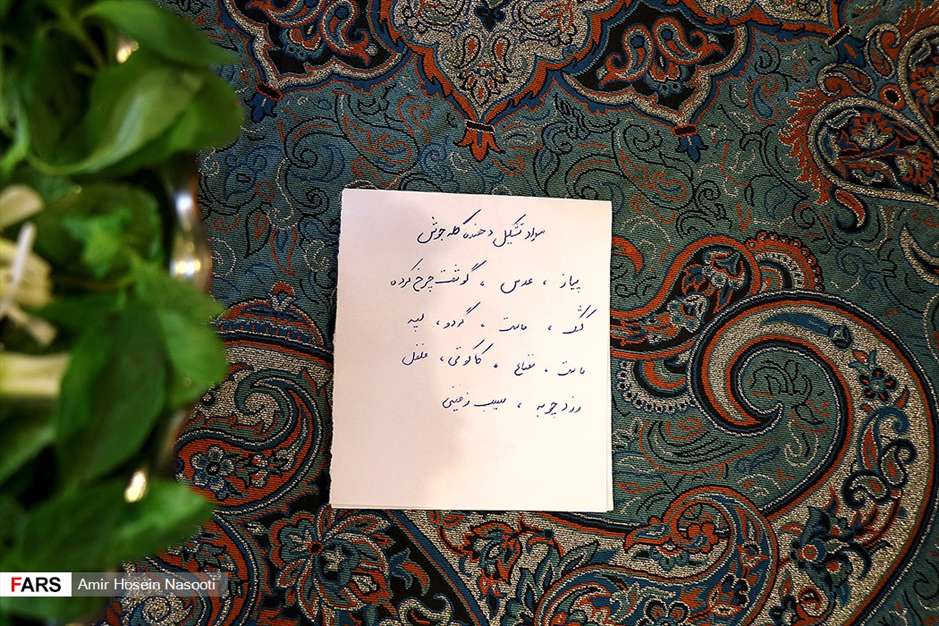 مواد تشکیل دهنده کله جوش
پیاز ، عدس ، گوشت چرخ کرده
کشک ، ماست ، گردو ، لپه
ماست ، نعناع ، کاکوتی ، فلفل
زردچوبه ، سیب زمینی
FARS Amir Hosein Nasooti